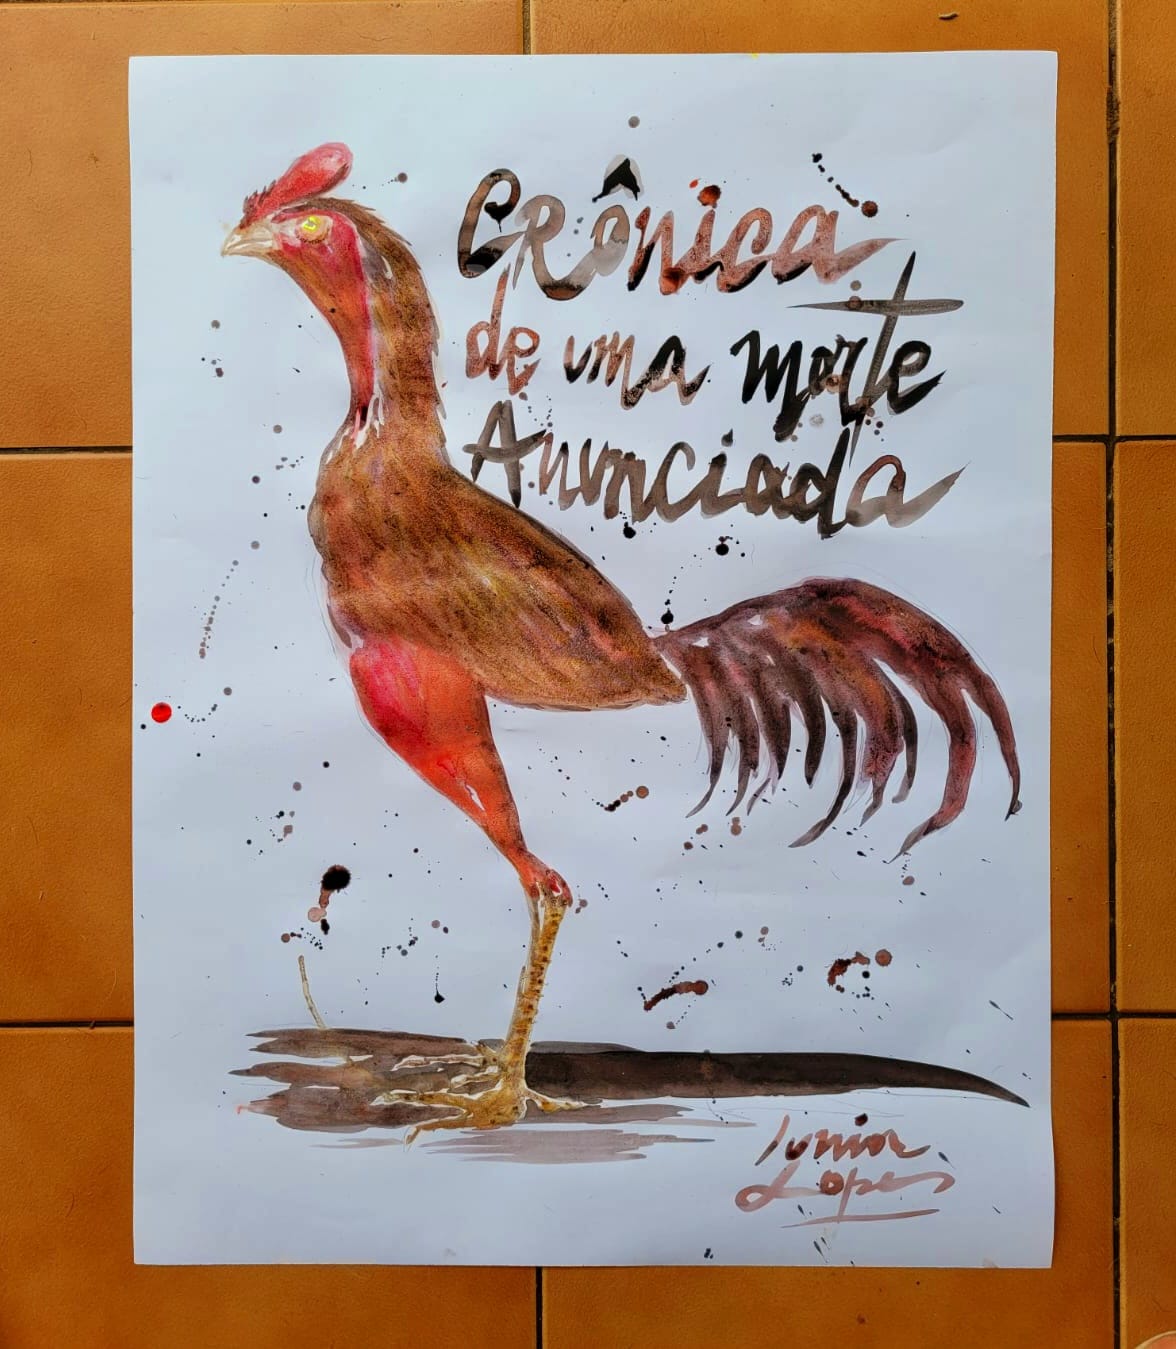 Crônica
de uma morte
Anunciada
Junior
Lopes